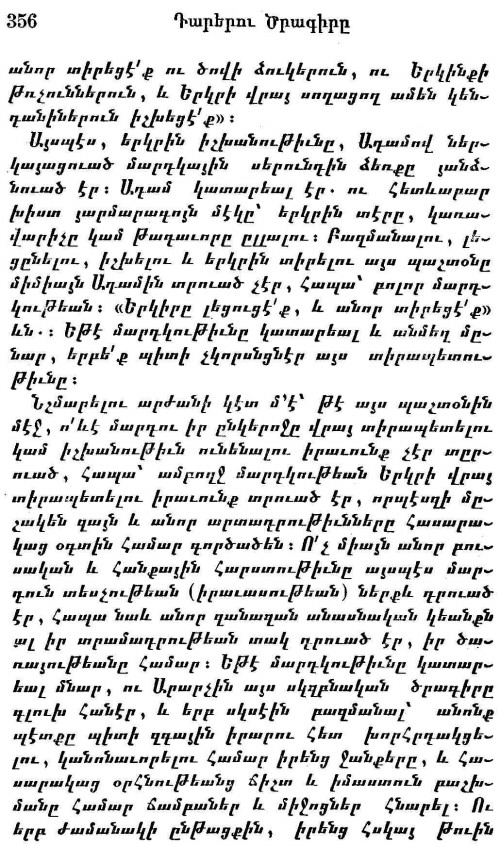 356 Դարերու Ծրագիրը
անոր տիրեցէ՛ք ու ծովի ձուկերուն, ու Երկինքի
թռչուններուն, և Երկրի վրայ սողացող ամեն կեն-
դանիներուն իշխեցէ՛ք»։
Այսպէս, երկրին իշխանութիւնը, Ադամով ներ-
կայացուած մարդկային սերունդին ձեռքը յանձ-
նուած էր։ Ադամ կատարեալ էր. ու Հետևաբար
խիստ յարմարագոյն մէկը՝ երկրին տէրը, կառա-
վարիչը կամ Թագաւորը ըլլալու։ Բազմանալու, լե-
ցընելու, իշխելու և երկրին տիրելու այս պաշտօնը
միմիայն Ադամին տրուած չէր, Հապա՝ բոլոր մարդ-
կութեան։ «Երկիրը լեցուցէ՛ք, և անոր տիրեցէ՛ք»
ևն.։ Եթէ մարդկութիւնը կատարեալ և անմեղ մը-
նար, երբե՛ք պիտի չկորսնցնէր այս տիրապետու-
թիւնը։
Նշմարելու արժանի կէտ մ՚է՝ թէ այս պաշտօնին
մէջ, ո՛ևէ մարդու իր ընկերոջը վրայ տիրապետելու
կամ իշխանութիւն ունենալու իրաւունք չէր տըր-
ուած, Հապա՝ ամբողջ մարդկութեան Երկրի վրայ
տիրապետելու իրաւունք տրուած էր, որպէսզի մը-
շակեն զայն և անոր արտադրութիւնները Հասարա-
կաց օգտին Համար գործածեն։ Ո՛չ միայն անոր բու-
սական և Հանքային Հարստութիւնը այսպէս մար-
դուն տեսչութեան (իրաւասութեան) ներքև դրուած
էր, Հապա նաև անոր զանազան անասնական կեանքն
ալ իր տրամադրութեան տակ դրուած էր, իր ծա-
ռայութեանը Համար։ Եթէ մարդկութիւնը կատար-
եալ մնար, ու Արարչին այս սկզբնական ծրագիրը
գլուխ Հանէր, և երբ սկսէին բազմանալ՝ անոնք
պէտքը պիտի զգային իրարու Հետ խորՀրդակցե-
լու, կանոնաւորելու Համար իրենց ջանքերը, և Հա-
սարակաց օրՀնութեանց ճիշտ և իմաստուն բաշխ-
մանը Համար ճամբաներ և միջոցներ Հնարել։ Ու
երբ ժամանակի ընթացքին, իրենց Հսկայ թուին